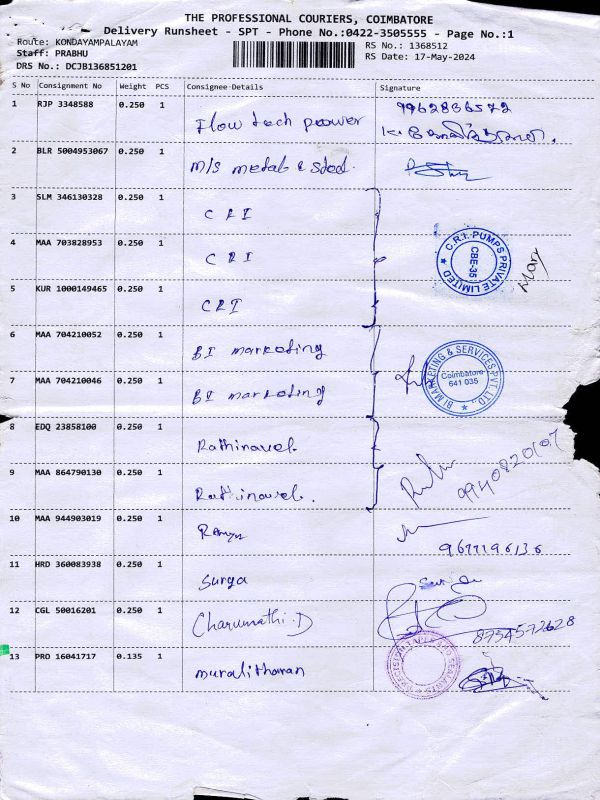 THE PROFESSIONAL COURIERS, COIMBATORE
Delivery Runsheet - SPT - Phone No.:0422-3505555 - Page No.:1
Route: KONDAYAMPALAYAM
RS No.: 1368512
Staff: PRABHU
RS Date: 17-May-2024
DRS No.: DCJB136851201
S No Consignment No Weight PCS Consignee Details Signature
1 RJP 3348588 0.250 1 Flow tech power
2 BLR 5004953067 0.250 1 M/s metal & steel
3 SLM 346130328 0.250 1 CRI
4 MAA 703828953 0.250 1 CRI
C.R.I. PUMPS PRIVATE LIMITED
CBE-35
Mary
5 KUR 1000149465 0.250 1 CRI
6 MAA 704210052 0.250 1 BI marketing
7 MAA 704210046 0.250 1 BI marketing
BI MARKETING & SERVICES PVT. LTD.
Coimbatore
641 035
8 EDQ 23858100 0.250 1 Rathinavel
9 MAA 864790130 0.250 1 Rathinavel.
9940820107
10 MAA 944903019 0.250 1 Ramya
9677196136
11 HRD 360083938 0.250 1 Surya
12 CGL 50016201 0.250 1 Charumathi.D
8754572628
13 PRO 16041717 0.135 1 muralitharan